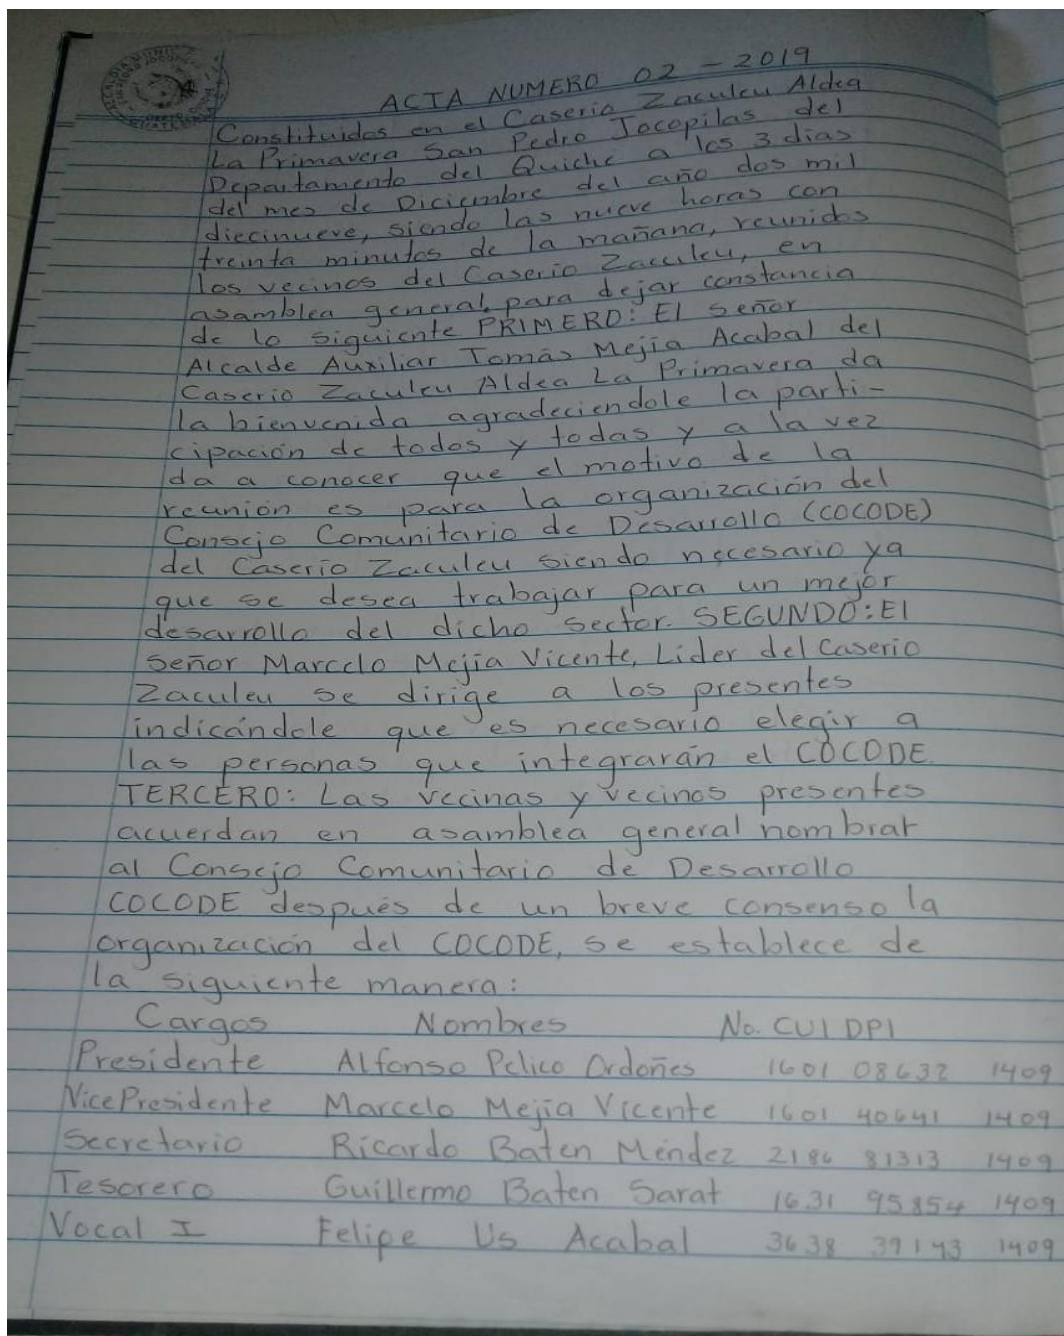 ACTA NUMERO 02 - 2019
Constituidos en el Caserio Zaculeu Aldea
La Primavera San Pedro Jocopilas del
Departamento del Quiche a los 3 dias
del mes de Diciembre del año dos mil
diecinueve, siendo las nueve horas con
treinta minutos de la mañana, reunidos
los vecinos del Caserio Zaculeu, en
asamblea general para dejar constancia
de lo siguiente PRIMERO: El señor
Alcalde Auxiliar Tomás Mejia Acabal del
Caserio Zaculeu Aldea La Primavera da
la bienvenida agradeciendole la parti-
cipación de todos y todas y a la vez
da a conocer que el motivo de la
reunión es para la organización del
Consejo Comunitario de Desarrollo (COCODE)
del Caserio Zaculeu siendo necesario ya
que se desea trabajar para un mejor
desarrollo del dicho sector. SEGUNDO: El
señor Marcelo Mejia Vicente, Lider del Caserio
Zaculeu se dirige a los presentes
indicándole que es necesario elegir a
las personas que integrarán el COCODE.
TERCERO: Las vecinas y vecinos presentes
acuerdan en asamblea general nombrar
al Consejo Comunitario de Desarrollo
COCODE después de un breve consenso la
organización del COCODE, se establece de
la siguiente manera:
Cargos Nombres No. CUI DPI
Presidente Alfonso Pelico Ordoñes 1601 08632 1409
Vice Presidente Marcelo Mejia Vicente 1601 40641 1409
Secretario Ricardo Baten Méndez 2186 81313 1409
Tesorero Guillermo Baten Sarat 1631 95854 1409
Vocal I Felipe Us Acabal 3638 39143 1409